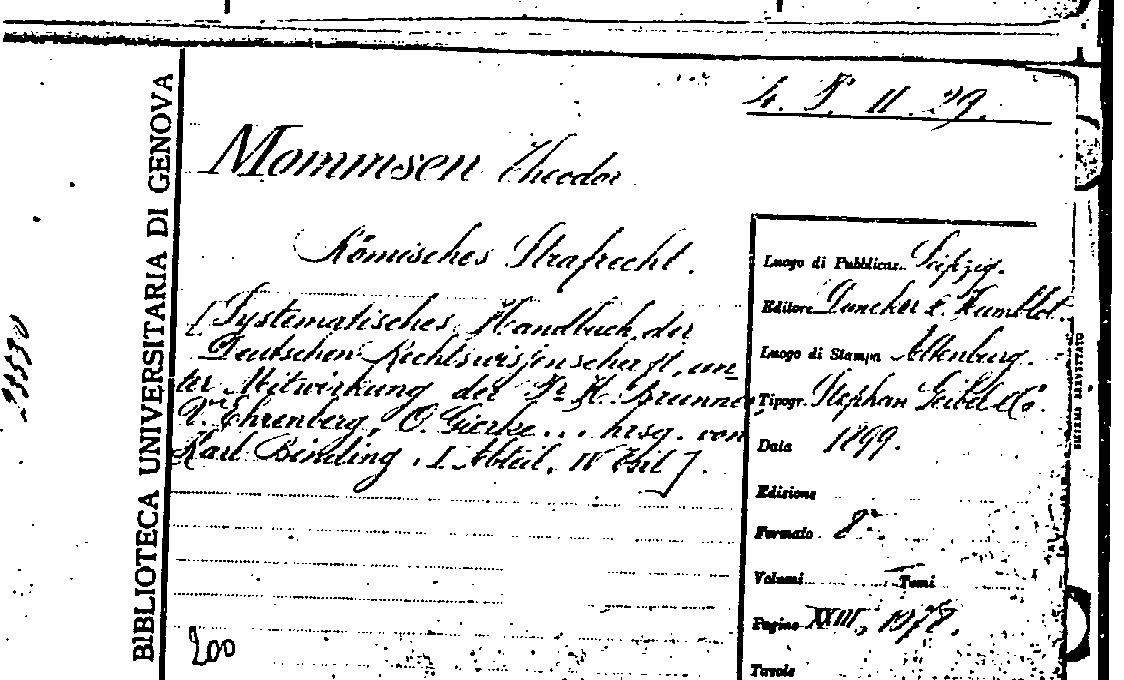 4. P. II. 29.
Mommsen Theodor
Römisches Strafrecht.
[Systematisches Handbuch der
Deutschen Rechtswissenschaft, un-
ter Mitwirkung der Hr H. Brunner
V. Ehrenberg, O. Gierke... hrsg. von
Karl Binding. I Abteil. IV Theil].
Luogo di Pubblicaz. Leipzig.
Editore Duncker & Humblot.
Luogo di Stampa Altenburg.
Tipogr. Stephan Geibel & C.
Data 1899.
Edizione
Formato 8°
Volumi Tomi
Pagine XXIII, 1078.
Tavole
BIBLIOTECA UNIVERSITARIA DI GENOVA
200